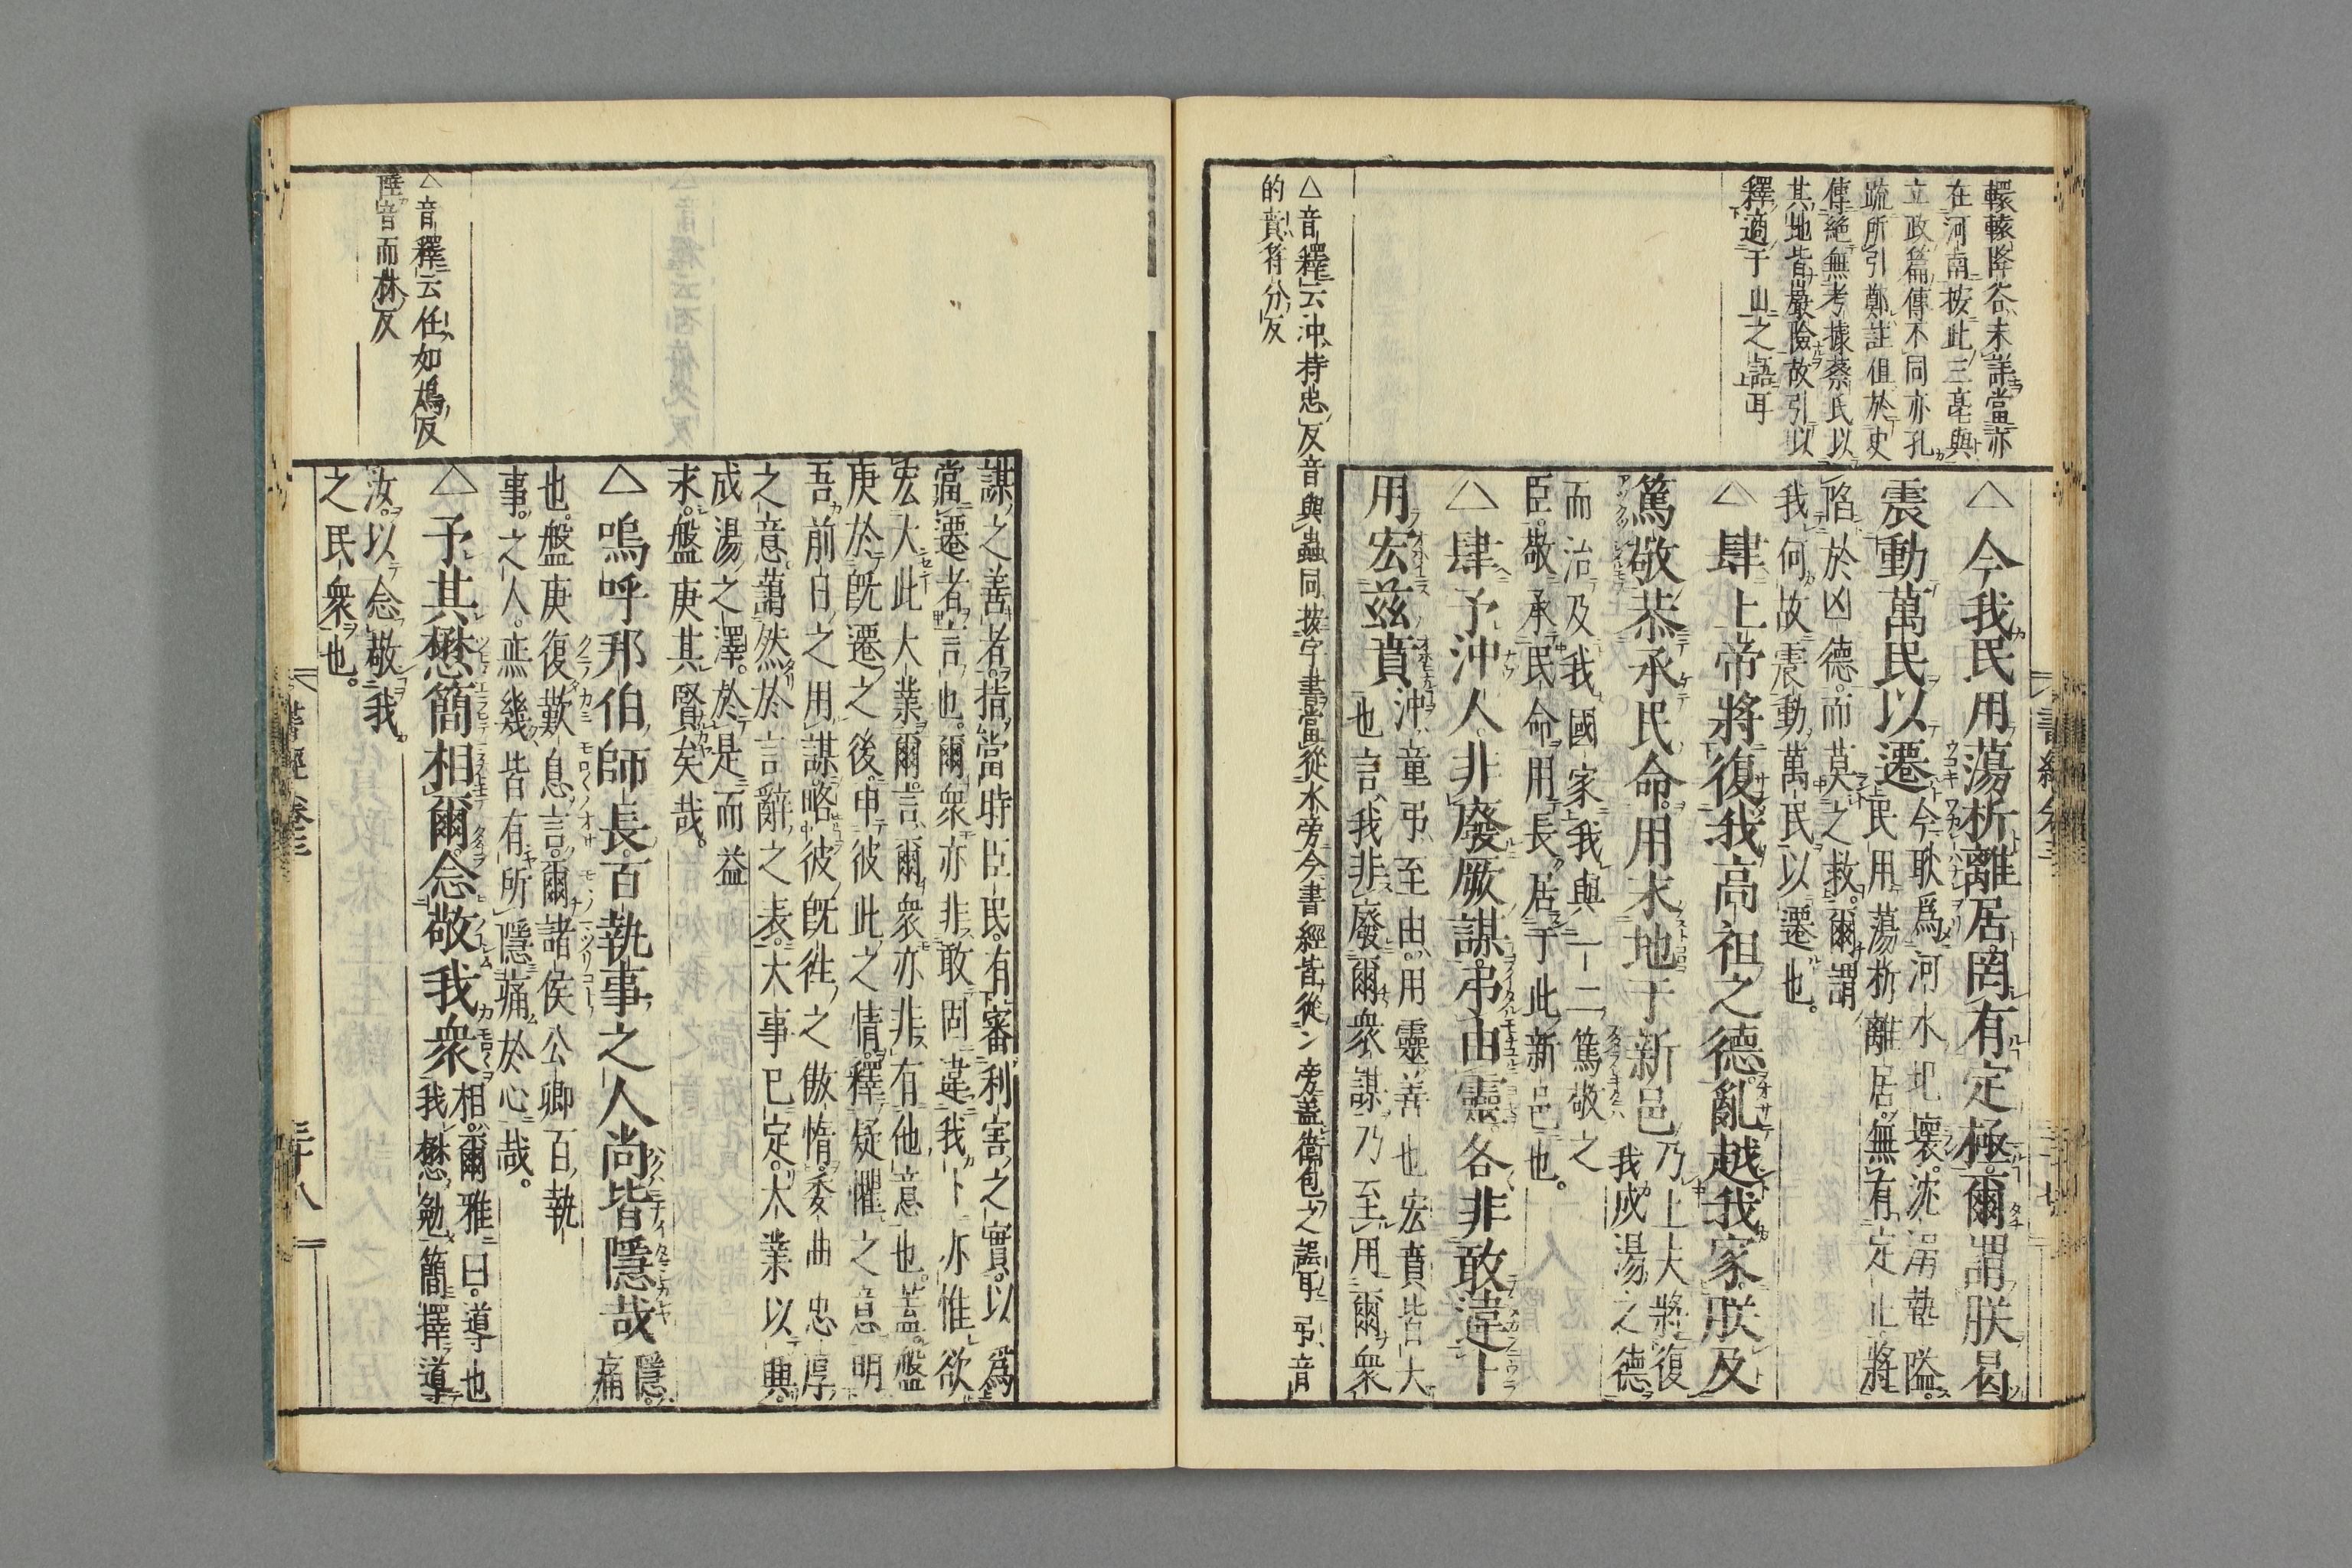 轘轅降谷未詳當亦
在河南按此三亳與
立政篇傳不同亦孔
疏所引鄭註但於史
傳絶無考據蔡氏以
其地皆嚴險故引以
釋適于山之語耳
△今我民用蕩析離居罔有定極爾謂朕曷
震動萬民以遷
今耿爲河水圯壞沈溺墊隘
民用蕩析離居無有定止將
陷於凶德而莫之救爾謂
我何故震動萬民以遷也
△肆上帝將復我高祖之德亂越我家朕及
篤敬恭承民命用永地于新邑
乃上天將復
我成湯之德
而治及我國家我與一二篤敬之
臣敬承民命用長居于此新邑也
△肆予沖人非廢厥謀弔由靈各非敢違卜
用宏茲賁
沖童弔至由用靈善也宏賁皆大
也言我非廢爾衆謀乃至用爾衆
△音釋云沖持忠反音與蟲同按字書當從水旁今書經皆從冫旁蓋衛包之誤耳弔音
的賁符分反
謀之善者指當時臣民有審利害之實以爲
當遷者言也爾衆亦非敢固違我卜亦惟欲
宏大此大業爾言爾衆亦非有他意也蓋盤
庚於既遷之後申彼此之情釋疑懼之意明
吾前日之用謀略彼既往之傲惰委曲忠厚
之意藹然於言辭之表大事已定大業以興
成湯之澤於是而益
永盤庚其賢矣哉
△嗚呼邦伯師長百執事之人尚皆隱哉
隱痛
也盤庚復歎息言爾諸侯公卿百執
事之人庶幾皆有所隱痛於心哉
△音釋云任如鴆反
陸音而林反
△予其懋簡相爾念敬我衆
相爾雅曰導也
我懋勉簡擇導
汝以念敬我
之民衆也
書經卷三
三十八